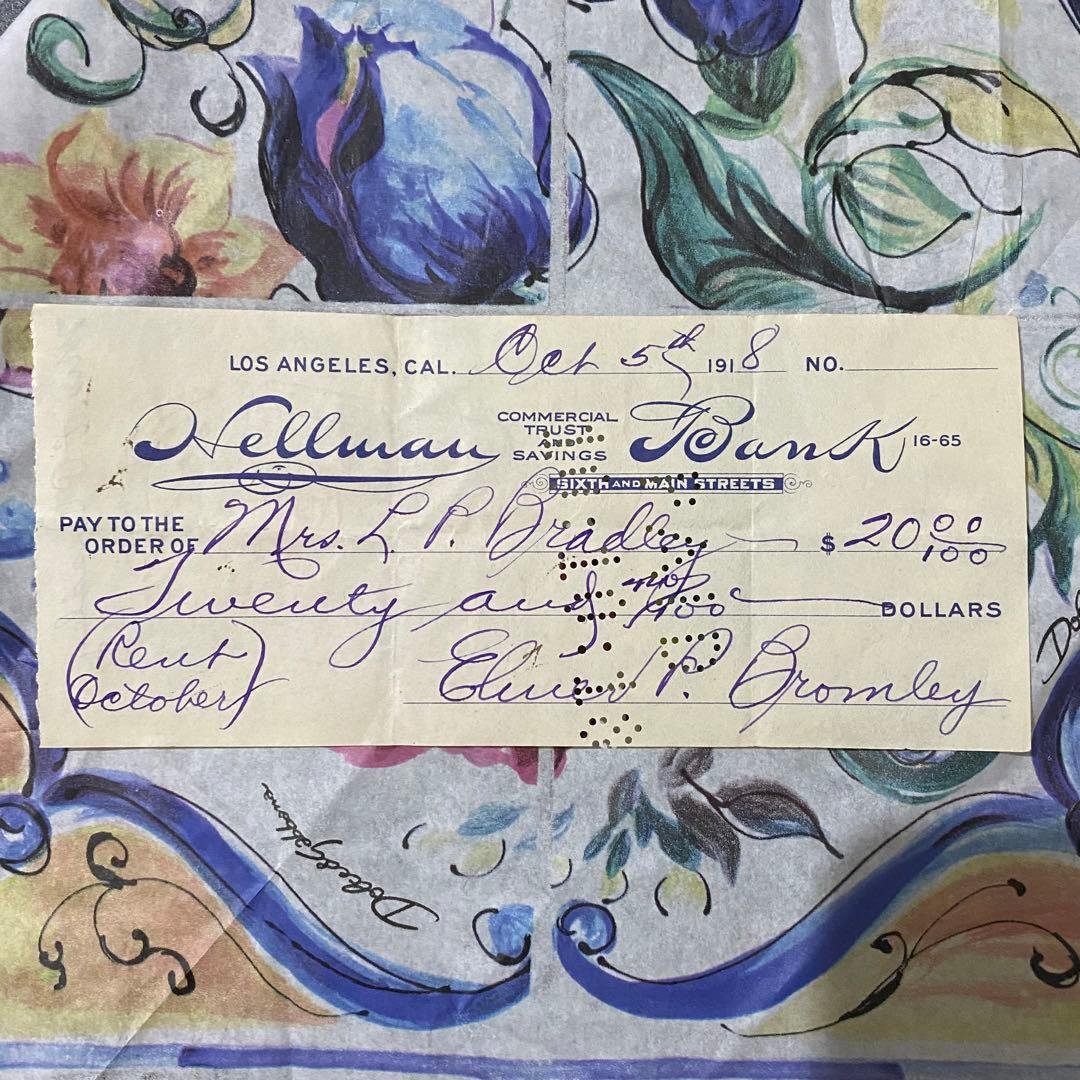 LOS ANGELES, CAL. Oct 5th 1918 NO.
Hellman COMMERCIAL TRUST AND SAVINGS Bank 16-65
SIXTH AND MAIN STREETS
PAY TO THE ORDER OF Mrs. L. P. Bradley $ 20 00/100
Twenty and no/100 DOLLARS
(Rent
October)
Elmer P. Bromley
Dolce&Gabbana